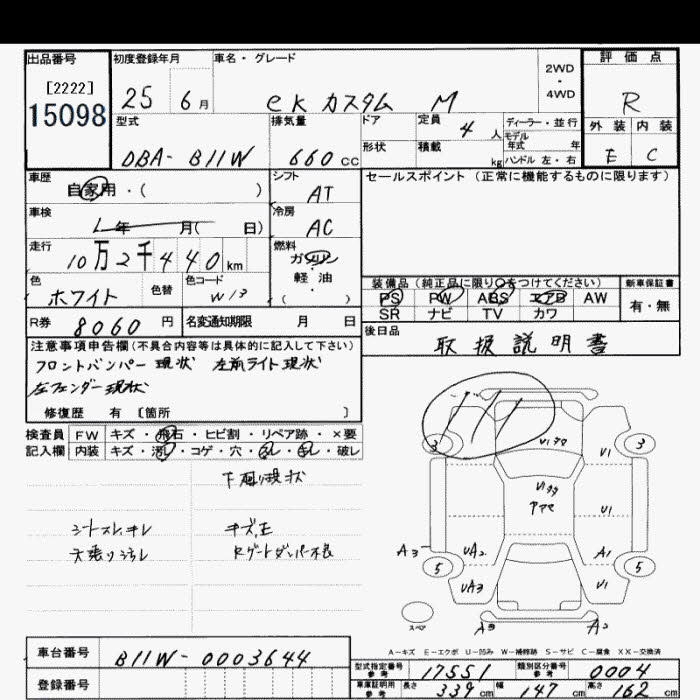 出品番号 初度登録年月 車名・グレード 2WD ・ 4WD 評価点
[2222]
15098 25 6月 eK カスタム M R
型式 排気量 ドア 定員 4人 ディーラー・並行 外装 内装
モデル年式 年
DBA- B11W 660cc 形状 積載 kg ハンドル 左・右 E C
車歴 シフト セールスポイント (正常に機能するものに限ります)
自家用・( ) AT
車検 冷房
年 月( 日) AC
走行 燃料
10万2千440km ガソリン
色 色替 色コード 軽油 装備品 (純正品に限り○をつけてください) 新車保証書
ホワイト W13 ・( ) PS PW ABS エアB AW 有・無
SR ナビ TV カワ
R券 8060円 名変通知期限 月 日 後日品
注意事項申告欄(不具合内容等は具体的に記入して下さい) 取扱説明書
フロントバンパー現状 左前ライト現状
左フェンダー現状
修復歴 有 [箇所 ]
検査員 FW キズ・飛石・ヒビ割・リペア跡・×要
記入欄 内装 キズ・汚れ・コゲ・穴・・・破レ
下廻り現状
シートスレ、キレ キズ、E
天張りヨゴレ Rゲートダンパー不良
3 3
U1 U1 A1 U1
A3 UA2 UA3
5 5
スペア A3 A2
A-キズ E-エクボ U-凹み W-補修跡 S-サビ C-腐食 XX-交換済
車台番号 B11W-0003644
型式指定番号 参考 17551 類別区分番号 参考 0004
登録番号 車庫証明用 参考 長さ 339cm 幅 147cm 高さ 162cm